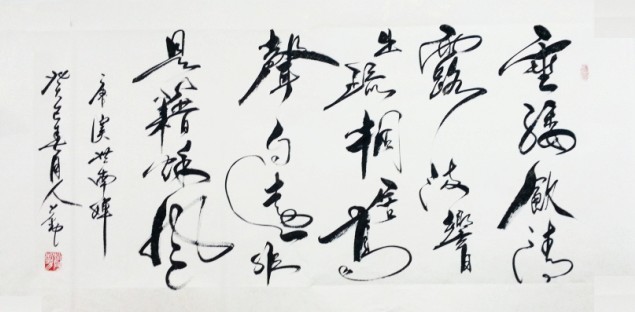 垂緌飲清
露流響
出疏桐居高
聲自遠非
是籍秋風
唐虞世南蟬
癸巳春月